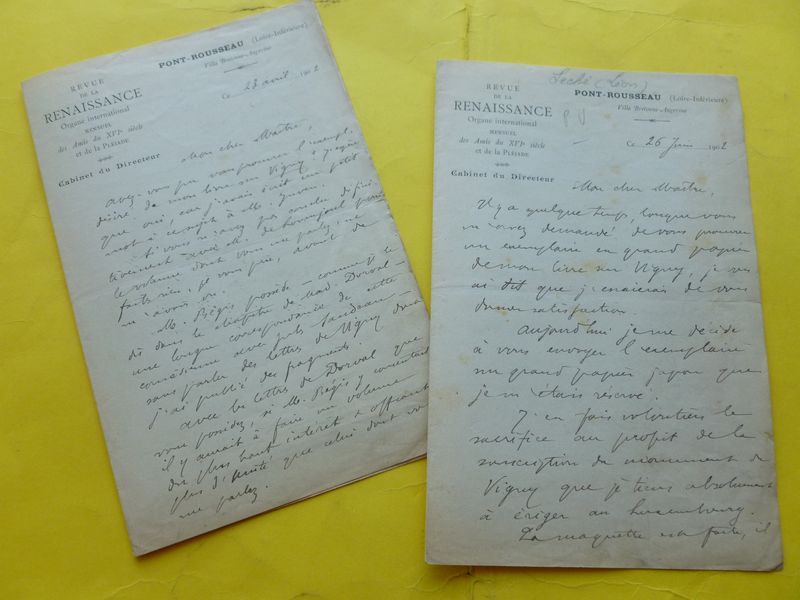 REVUE
DE LA
RENAISSANCE
Organe international
MENSUEL
des Amis du XVIe siècle
et de la PLÉIADE
Cabinet du Directeur
PONT-ROUSSEAU (Loire-Inférieure)
Villa Bretonne-Angevine
Ce 28 avril 1902
Mon cher Maître,
Avez-vous pu vous procurer l'exempl.
désiré de mon livre sur Vigny? J'espère
que oui, car j'avais écrit un petit
mot à ce sujet à M.
Si vous n'avez pas conclu définitivement
avec M. de
le volume dont vous me parlez, ne
faites rien, je vous prie, avant de
m'avoir vu.
M. Régis possède – comme je le
dis dans le chapitre de Mad. Dorval –
une longue correspondance de cette
comédienne avec Jules Sandeau
sans parler des lettres de Vigny dont
j'ai publié des fragments.
Avec les lettres de Dorval que
vous possédez, si M. Régis y consentait
il y aurait à faire un volume
du plus haut intérêt & offrant
plus d'unité que celui dont vous
me parlez.
REVUE
DE LA
RENAISSANCE
Organe international
MENSUEL
des Amis du XVIe siècle
et de la PLÉIADE
Cabinet du Directeur
Séché (Léon)
PONT-ROUSSEAU (Loire-Inférieure)
Villa Bretonne-Angevine
Ce 26 Juin 1902
Mon cher Maître,
Il y a quelque temps, lorsque vous
m'avez demandé de vous procurer
un exemplaire en grand papier
de mon livre sur Vigny, je vous
ai dit que j'essaierais de vous
donner satisfaction.
Aujourd'hui je me décide
à vous envoyer l'exemplaire
sur grand papier japon que
je m'étais réservé.
J'en fais volontiers le
sacrifice au profit de la
souscription du monument de
Vigny que je tiens absolument
à ériger au Luxembourg.
La maquette est faite, il